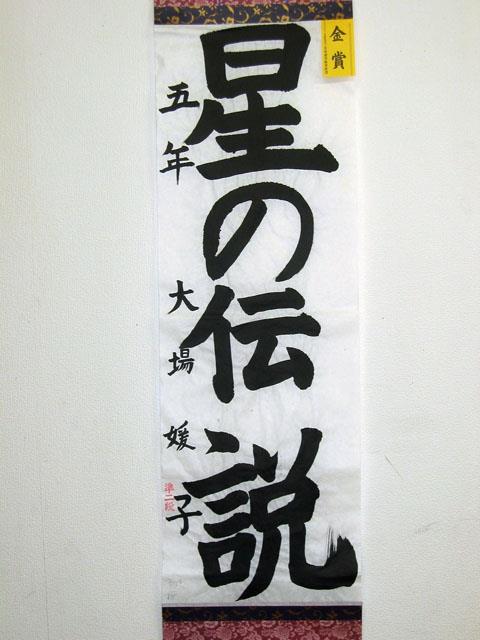 金賞
星の伝説
五年 大場媛子
準二段